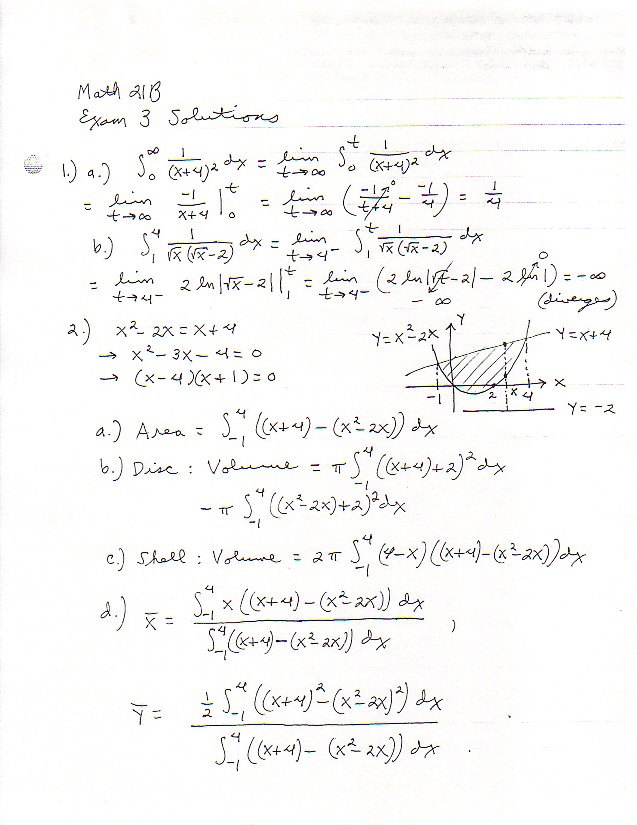 Math 21B
Exam 3 Solutions
1.) a.) ∫₀^∞ 1/(x+4)² dx = lim_{t→∞} ∫₀^t 1/(x+4)² dx
= lim_{t→∞} -1/(x+4) |₀^t = lim_{t→∞} (-1/(t+4) → 0 - -1/4) = 1/4
b.) ∫₁^4 1/(√x(√x-2)) dx = lim_{t→4⁻} ∫₁^t 1/(√x(√x-2)) dx
= lim_{t→4⁻} 2 ln|√x-2| |₁^t = lim_{t→4⁻} (2 ln|√t-2| → -∞ - 2 ln 1 → 0) = -∞
(diverges)
2.) x²-2x = x+4
→ x²-3x-4=0
→ (x-4)(x+1)=0
Y=x²-2x Y Y=x+4
-1 2 x 4 x
Y=-2
a.) Area = ∫₋₁^4 ((x+4)-(x²-2x)) dx
b.) Disc : Volume = π ∫₋₁^4 ((x+4)+2)² dx
- π ∫₋₁^4 ((x²-2x)+2)² dx
c.) Shell : Volume = 2π ∫₋₁^4 (4-x)((x+4)-(x²-2x)) dx
d.) x̄ = ∫₋₁^4 x((x+4)-(x²-2x)) dx / ∫₋₁^4 ((x+4)-(x²-2x)) dx ,
Ȳ = ½ ∫₋₁^4 ((x+4)²-(x²-2x)²) dx / ∫₋₁^4 ((x+4)-(x²-2x)) dx .